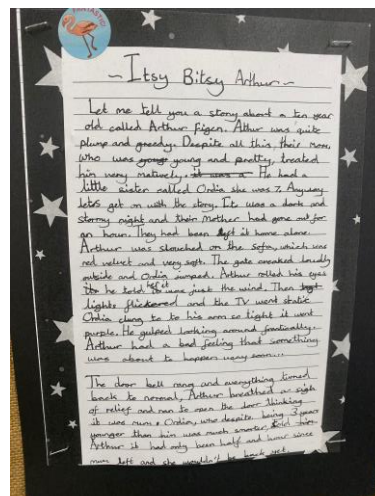 FANTASTIC
~Itsy Bitsy Arthur~
Let me tell you a story about a ten year
old called Arthur Figen. Athur was quite
plump and greedy. Despite all this, their mom,
who was young and pretty, treated
him very maturely. it was a He had a
little sister called Ordia she was 7. Anyway
lets get on with the story. It was a dark and
stormy night and their Mother had gone out for
an hour. They had been left it home alone.
Arthur was slouched on the Sofa, which was
red velvet and very soft. The gate creaked loudly
outside and Ordia jumped. Arthur rolled his eyes
he told her it was just the wind. Then
lights flickered and the TV went static
Ordia clung to to his arm so tight it went
purple. He gulped looking around frantically.
Arthur had a bad feeling that something
was about to happen very soon...
The door bell rang and everything turned
back to normal, Arthur breathed a sigh
of relief and ran to open the door thinking
it was mum. Ordia, who despite being 3 years
younger than him was much smarter, told him
Arthur it had only been half and hour since
mum left and she wouldn't be back yet.